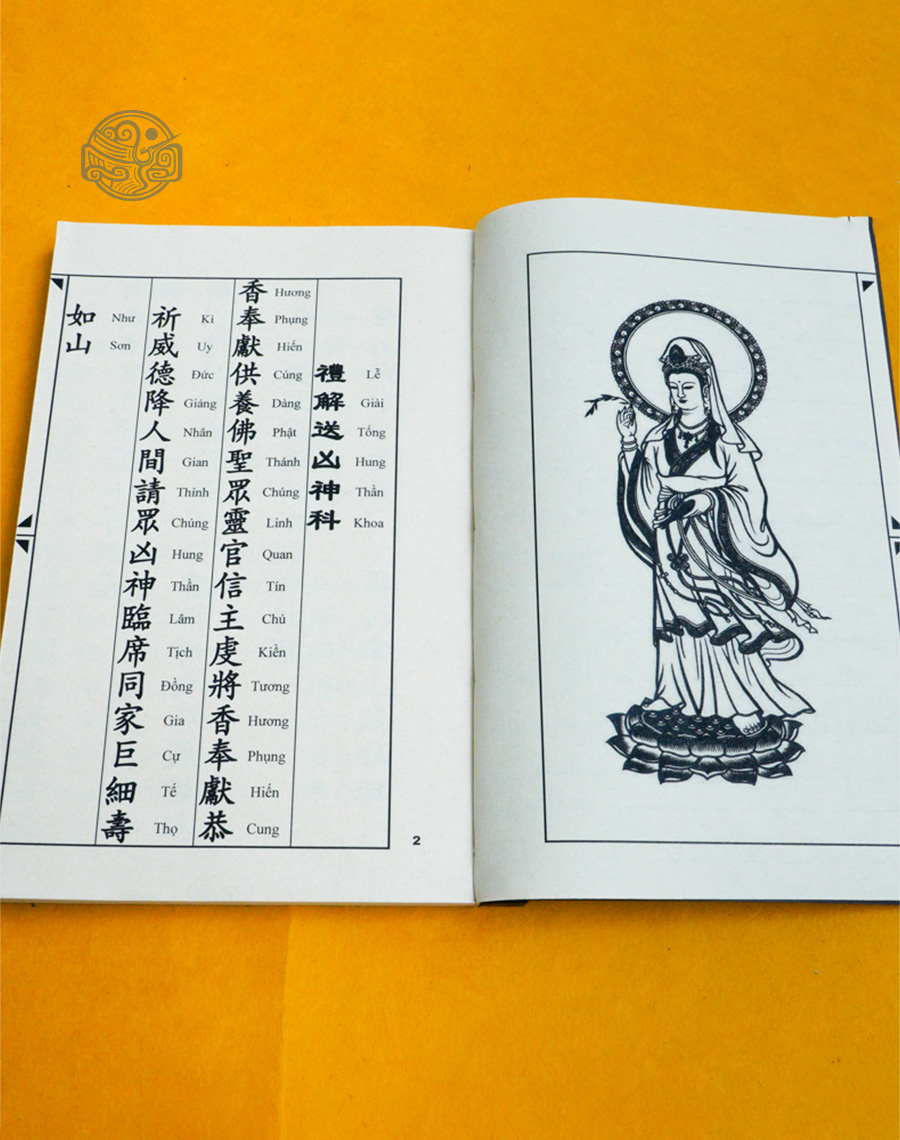 禮解送凶神科
Lễ Giải Tống Hung Thần Khoa
香奉獻供養佛聖眾靈官信主虔將香奉獻恭
Hương Phụng Hiến Cúng Dàng Phật Thánh Chúng Linh Quan Tín Chủ Kiền Tương Hương Phụng Hiến Cung
祈威德降人間請眾凶神臨席同家巨細壽
Kì Uy Đức Giáng Nhân Gian Thỉnh Chúng Hung Thần Lâm Tịch Đồng Gia Cự Tế Thọ
如山
Như Sơn
2